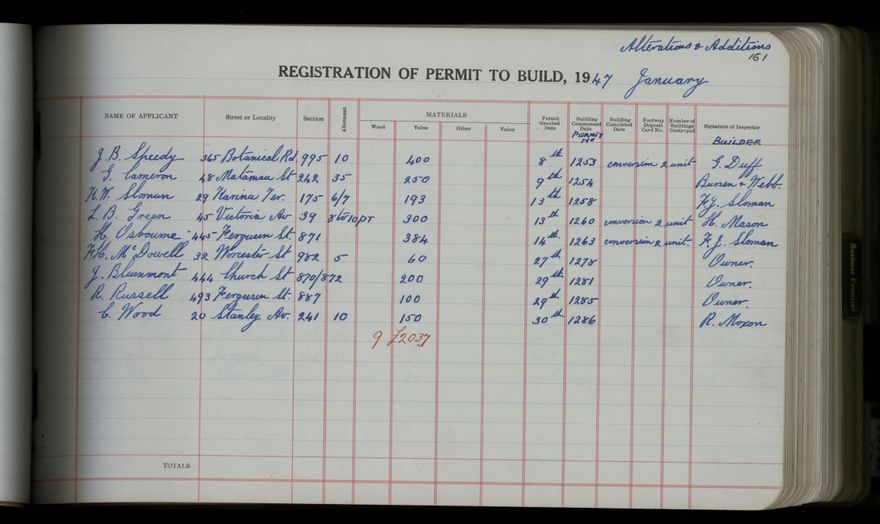 Alterations & Additions
161
REGISTRATION OF PERMIT TO BUILD, 1947 January
NAME OF APPLICANT Street or Locality Section Allotment MATERIALS Wood Value Other Value Permit Granted Date Building Commenced Date Permit No Building Completed Date Footway Deposit Card No. Number of Buildings Destroyed Signature of Inspector BUILDER
J. B. Speedy 365 Botanical Rd. 995 10 400 8th 1253 conversion 2 unit G. Duff
G. Cameron 48 Matamau St 242 35 250 9th 1254 Bunsen & Webb.
H. W. Sloman 29 Marina Ter. 175 6/7 193 13th 1258 F. J. Sloman
L. B. Green 45 Victoria Av 39 8 to 10 PT 300 13th 1260 conversion 2 unit H. Mason
H. Osbourne 445 Ferguson St. 871 384 14th 1263 conversion 2 unit. F. J. Sloman
F. H. McDowell 32 Worcester St 982 5 60 27th 1278 Owner.
J. Blummont 444 Church St 870/872 200 29th 1281 Owner.
R. Russell 493 Ferguson St. 887 100 29th 1285 Owner.
C. Wood 20 Stanley Av. 241 10 150 30th 1286 R. Moxon
9 £2037
TOTALS